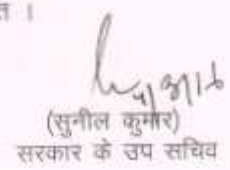 ।
(सुनील कुमार)
सरकार के उप सचिव